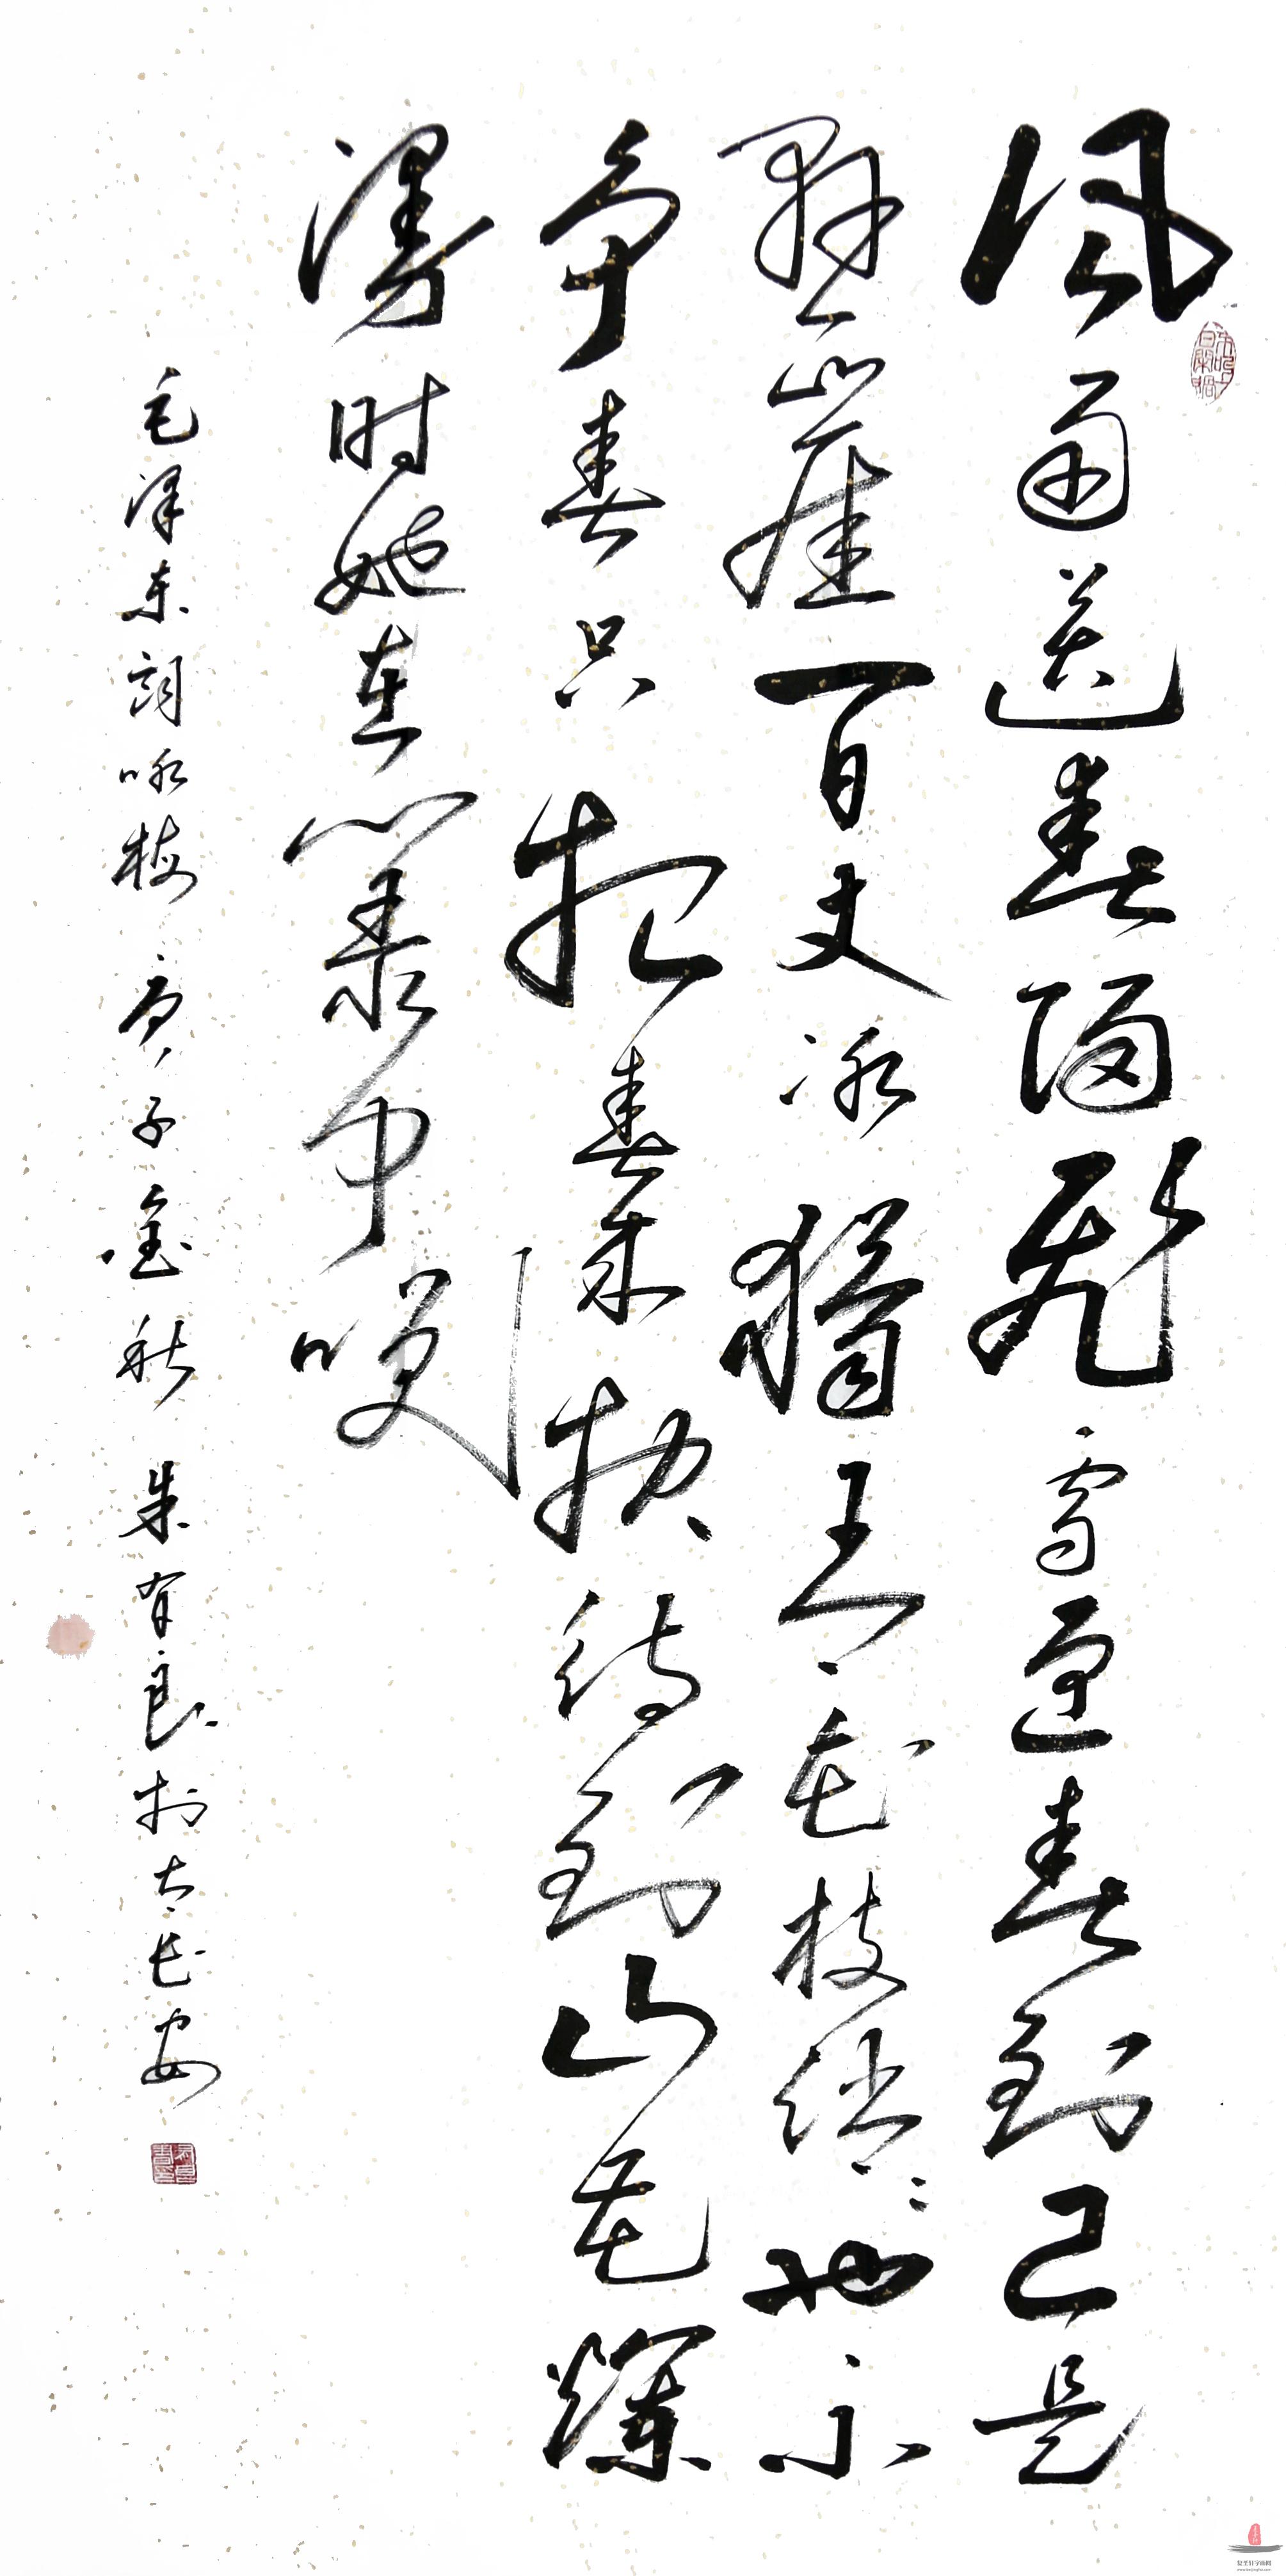 风雨送春归飛雪迎春到已是
懸崖百丈冰猶有花枝俏俏也不
争春只把春来报待到山花爛
漫时她在叢中笑
毛泽东词咏梅 庚子金秋 朱有良於古长安